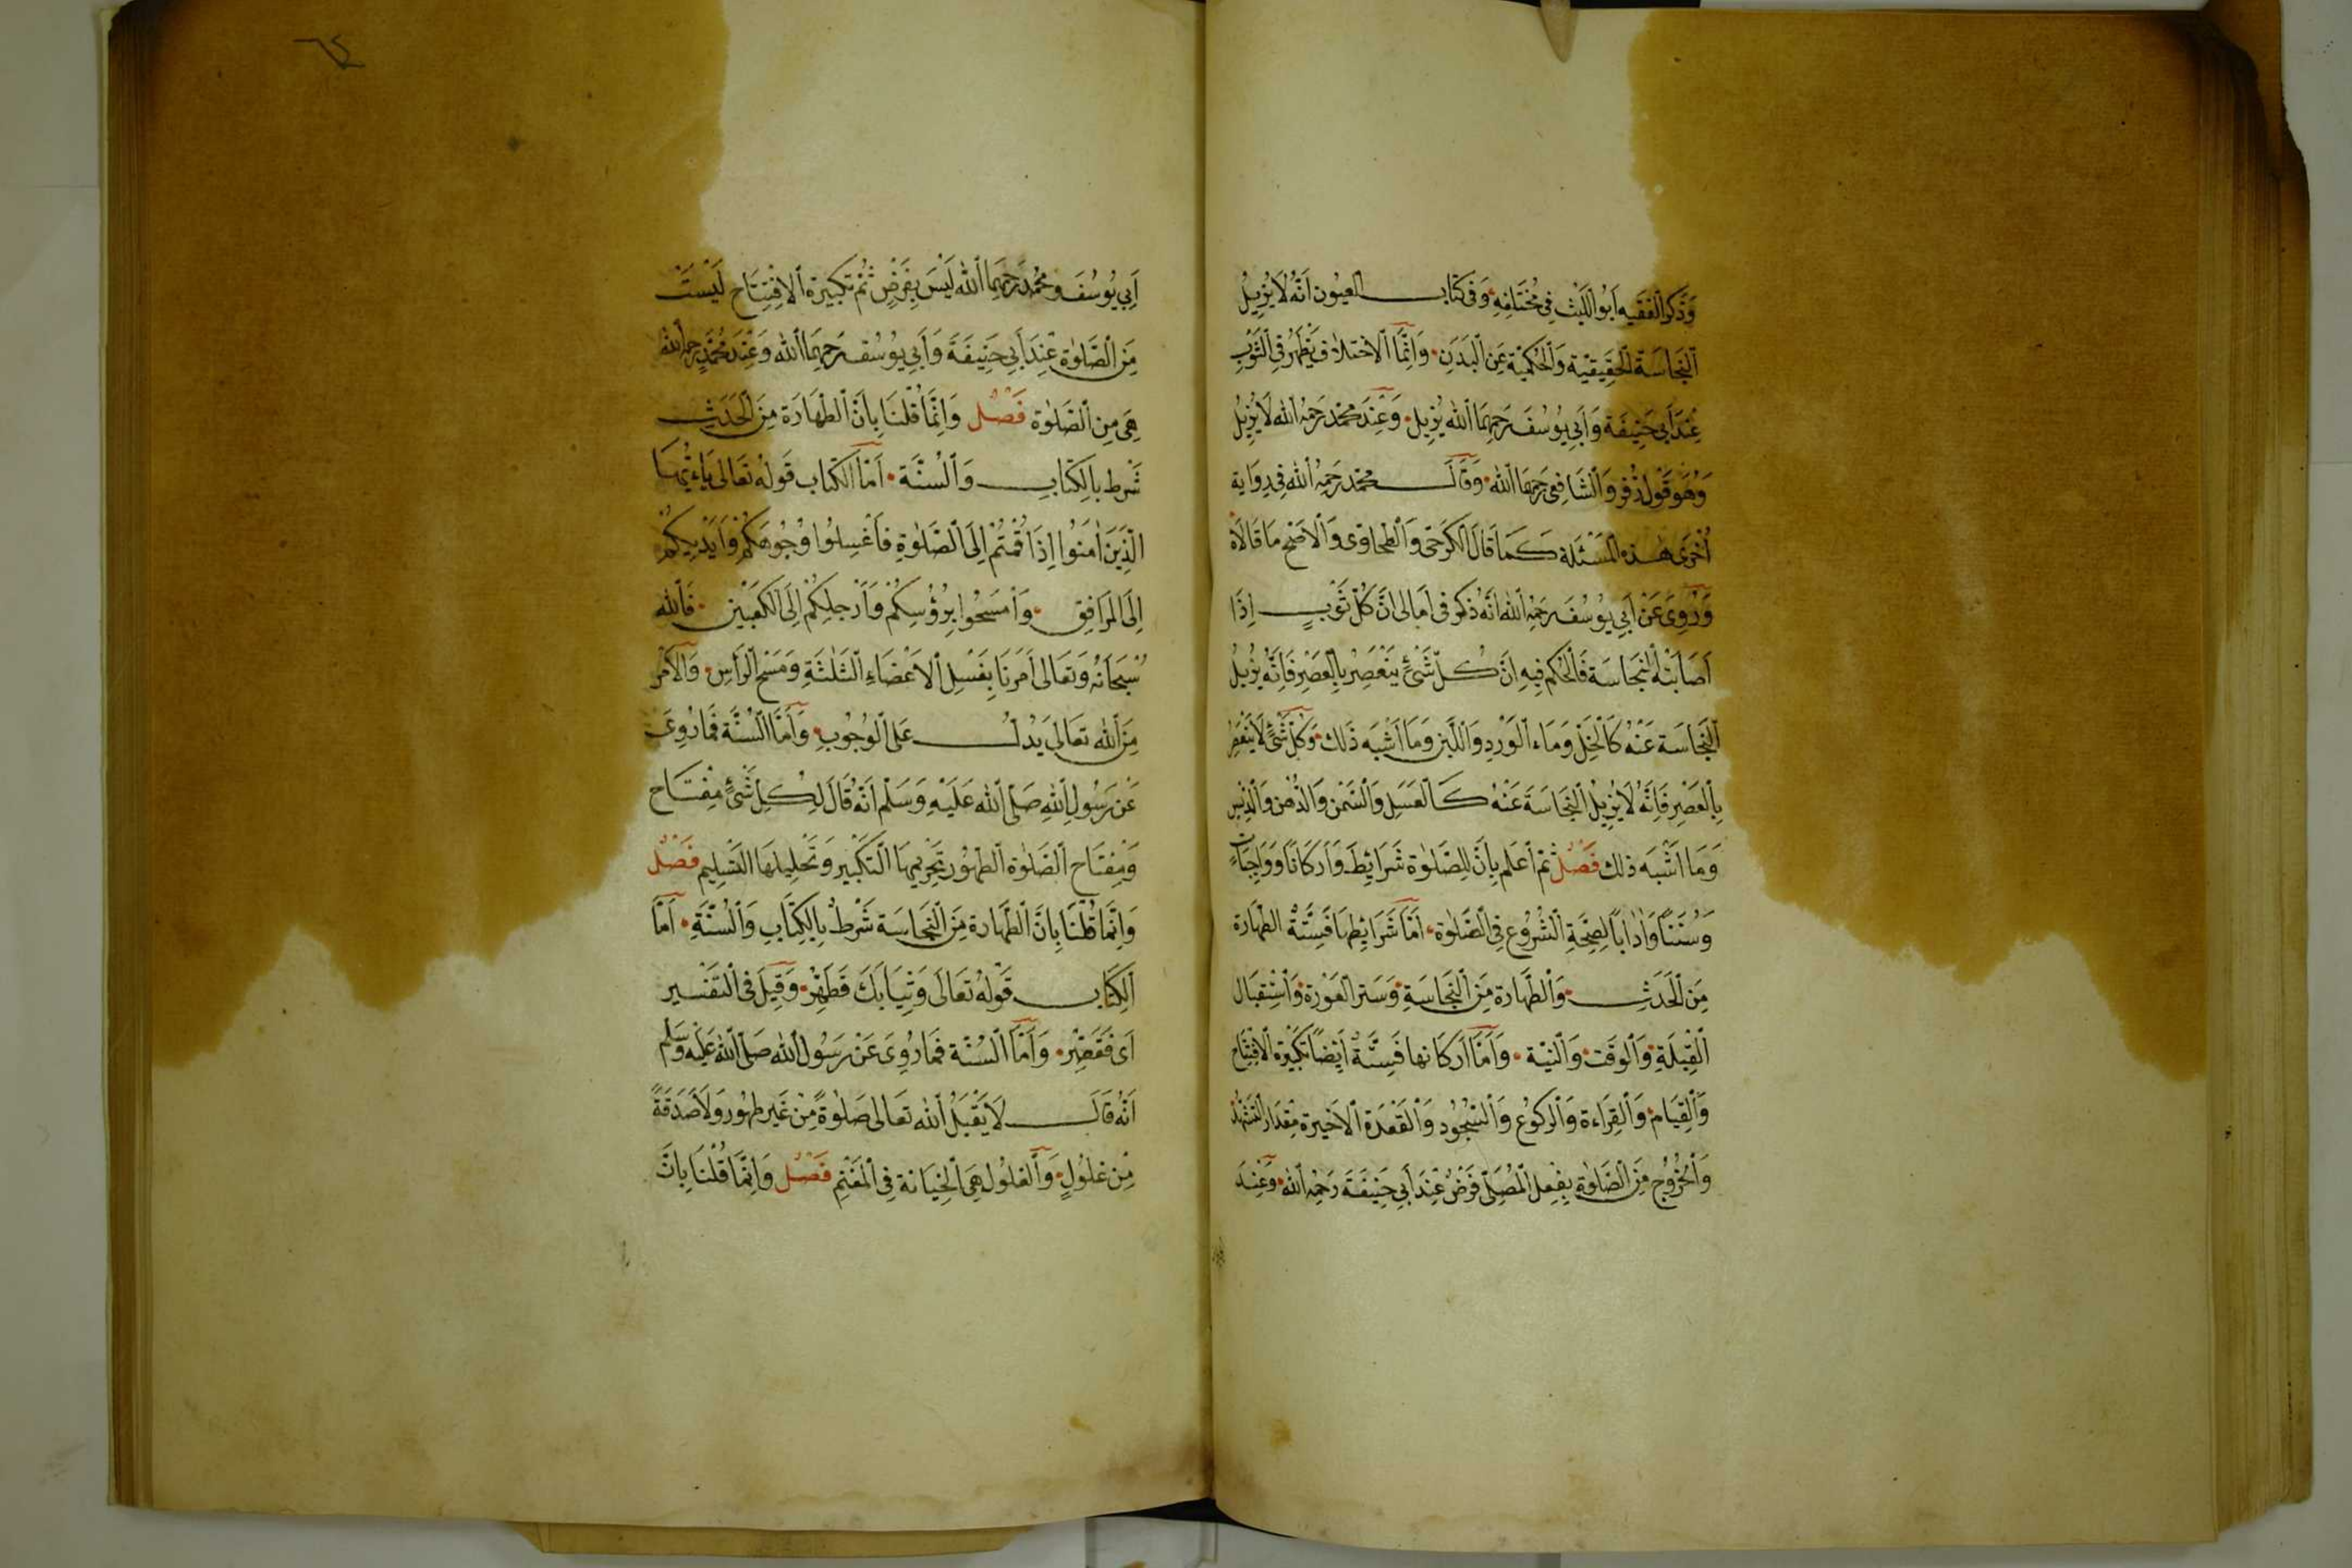 وَذَكَرَ الْفَقِيه اَبُو اللَّيْث فِي مُخْتَلِفِهِ وَفي كتاب العيُون اَنَّهُ لَا يُزِيلُ
النَّجَاسَة الْحَقِيقِيَّة وَالْحُكْمِيَّة عَنِ الْبَدَنِ وَاِنَّمَا الْاِخْتلاف يَظْهَرُ فِي الثَّوْبِ
عِنْدَ اَبِي حَنِيفَة وَاَبِي يُوسُفَ رَحِمَهُمَا الله يُزِيل وَعِنْدَ مُحَمَّد رَحِمَهُ الله لَا يُزِيلُ
وَهُوَ قَوْل زُفَر وَالشَّافِعِى رَحِمَهُمَا الله وَقَالَ محمّد رَحِمَهُ الله فِي رِوَاية
اُخْرَى هٰذِهِ الْمَسْئَلَة كَمَا قَالَ الْكَرْخِى وَالطَّحَاوِى وَالْاَصَحّ مَا قَالَاهُ
وَرُوِىَ عَنْ اَبِي يُوسُفَ رَحِمَهُ الله اَنَّهُ ذكر فى اَمَالى اَنَّ كُلّ ثَوْبٍ اِذَا
اَصَابَتْهُ النَّجَاسَة فَالْحُكْم فِيهِ اِنَّ كُلّ شَىْءٍ يَنْعَصِرُ بِالْعَصْرِ فَاِنَّهُ يُزِيلُ
النَّجَاسَة عَنْهُ كَالْخَلِّ وَمَاء الْوَرْدِ وَاللَّبَنِ وَمَا اَشْبَه ذَلك وَكُلّ شَىْءٍ لَا يَنْعَصِرُ
بِالْعَصْرِ فَاِنَّهُ لَا يُزِيلُ النَّجَاسَةَ عَنْهُ كَالْعَسَلِ وَالسَّمْن وَالدُّهْن وَالدِّبْسِ
وَمَا اَشْبَه ذلك فَصْلٌ ثمّ اَعْلم بِاَنَّ لِلصَّلٰوة شَرَائِطَ وَاَركَانًا وَوَاجِبَاتٍ
وَسُنَنًا وَاٰدَابًا لِصِحَّةِ الشُّرُوع فِي الصَّلٰوة اَمَّا شَرَائِطهَا فَسِتَّةٌ الطهَارة
مِنَ الْحَدَثِ وَالطَّهَارة مِنَ النَّجَاسَةِ وَسَتر الْعَوْرة وَاسْتِقبَال
الْقِبْلَةِ وَالْوقَت وَالنيّة وَاَمَّا اَركانها فَسِتَّةٌ اَيْضًا تَكْبِيْرَة الْاِفْتِتَاح
وَالْقِيَام وَالْقِرَاءة وَالْركوُع وَالسُّجُود وَالْقَعْدَة الْاَخيرة مِقدَار التَّشَهُّد
وَالْخُرُوْج مِنَ الصَّلٰوة بِفِعِل الْمُصَلّى فَرْضٌ عِنْدَ اَبِي حَنِيفَةَ رَحِمَهُ الله وَعِنْدَ
٦٤
اَبِي يُوسُفَ وَمُحَمَّد رَحِمَهُمَا الله لَيْسَ بِفَرْضٍ ثُمّ تكبِيرة الْاِفْتِتَاح لَيْسَتْ
مِنَ الصَّلٰوة عِنْدَ اَبِي حَنِيفَةَ وَاَبِي يُوسُفَ رَحِمَهُمَا الله وَعِنْدَ مُحَمَّد رحمه الله
هِىَ مِنَ الصَّلٰوة فَصْل وَاِنَّمَا قُلْنَا بِاَنَّ الطَّهَارَة مِنَ الْحَدَثِ
شَرْط بِالْكِتَابِ وَالسُّنَّة اَمَّا الْكتاب قَولهُ تعَالى يَا ءَيُّهَا
الَّذِيْنَ اٰمَنُوا اِذَا قُمْتُمْ اِلَى الصَّلٰوةِ فَاغْسِلُوا وُجُوهَكُمْ وَاَيْدِيكُمْ
اِلَى الْمَرَافِقِ وَاْمسَحُوا بِرُؤُسِكُمْ وَاَرْجلِكُمْ اِلَى الْكَعْبَيْنِ فَالله
سُبْحَانَهُ وَتعَالى اَمَرَنَا بِغَسْلِ الْاَعْضَاءِ الثَّلٰثَةِ وَمَسْح الرَّأسِ وَالْاَمْر
مِنَ الله تعَالى يَدُلُّ عَلَى الْوُجُوبِ وَاَمَّا السُّنَّة فَمَا رُوِىَ
عَنْ رَسُولِ اللهِ صَلَّى الله عَلَيْهِ وَسَلّم اَنَّهُ قَالَ لِكُلِّ شَىْءٍ مِفْتَاح
وَمِفتَاح الصَّلٰوة الطهُور تَحْرِيمهَا التَّكْبِير وَتَحْلِيلهَا التَّسْلِيم فَصْلٌ
وَاِنَّمَا قُلْنَا بِاَنَّ الطَّهَارة مِنَ النَّجَاسَة شَرْطٌ بِالْكِتَابِ وَالسُّنَّةِ اَمَّا
الْكِتَاب قَوْلهُ تعَالَى وَثِيَابَكَ فَطَهِّرْ وَقِيلَ فى التفْسير
اَى فَقَصِّرْ وَاَمَّا السُّنَّة فَمَا رُوِىَ عَنْ رَسُول الله صَلَّى الله عَلَيْهِ وَسَلَّم
اَنَّهُ قَالَ لَا يَقْبَلُ الله تعَالى صَلٰوةً مِنْ غَيْر طهُور وَلَا صَدَقَةً
مِنْ غلُولٍ وَالْغلُول هِىَ الْخِيَانة فِي الْمَغْنَمِ فَصْل وَاِنَّمَا قُلْنَا بِاَنَّ